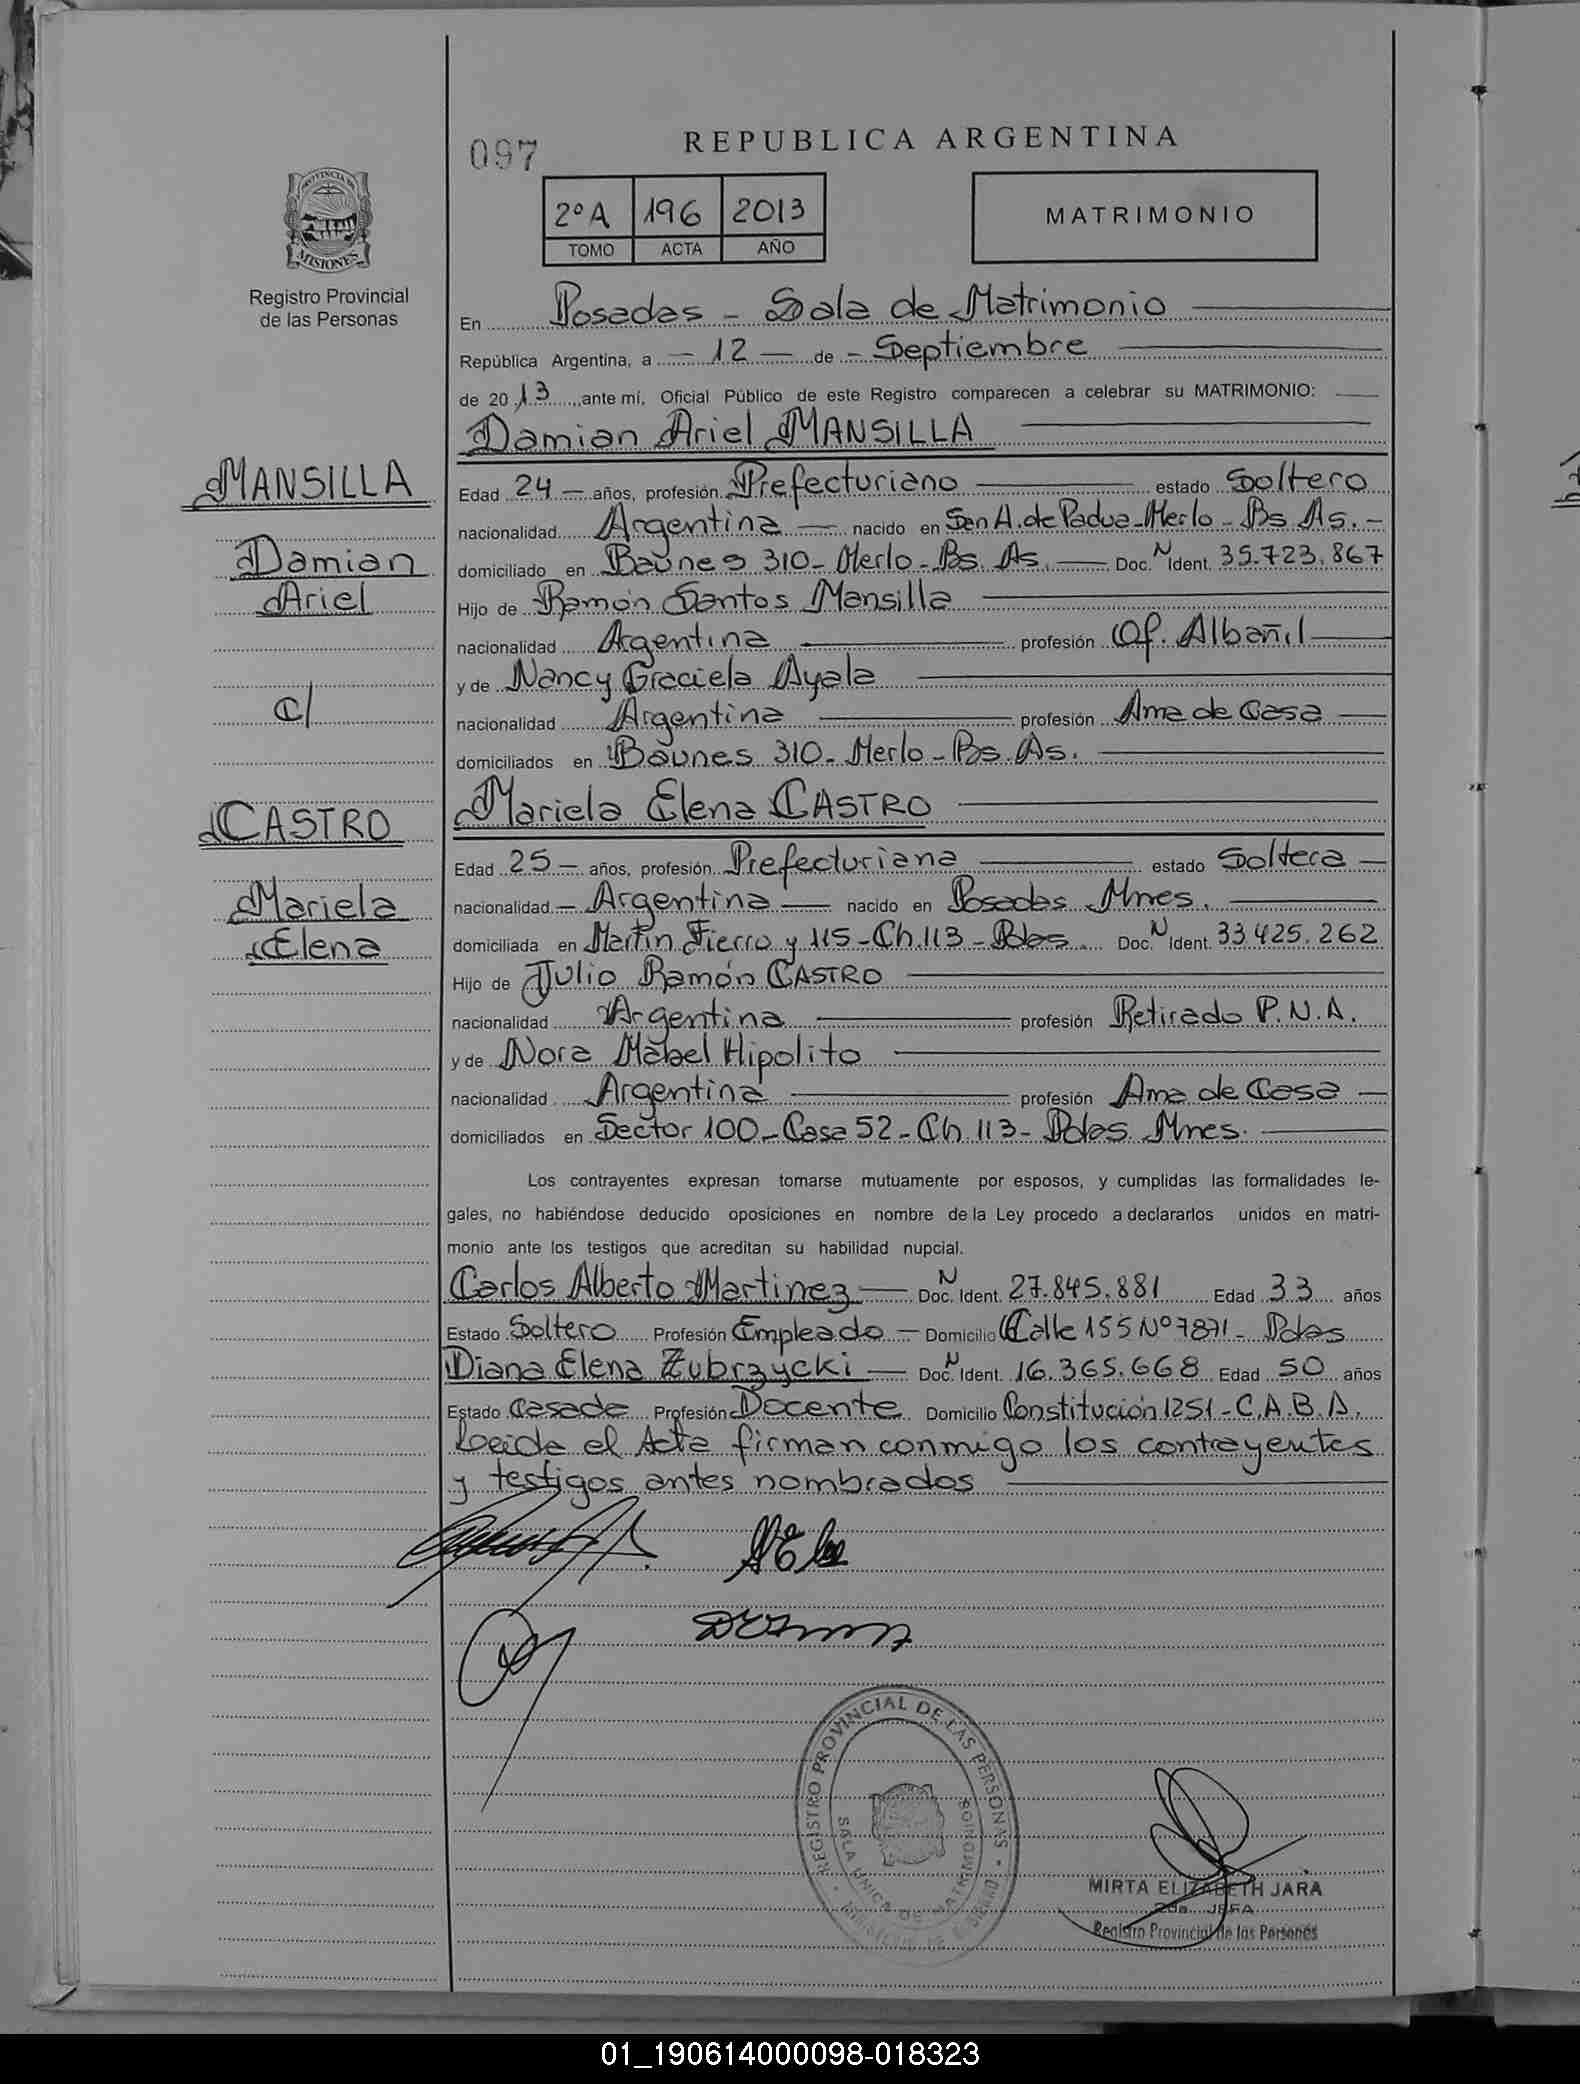 097
REPUBLICA ARGENTINA
2º A 196 2013
TOMO ACTA AÑO
MATRIMONIO
PROVINCIA DE
MISIONES
Registro Provincial
de las Personas
En Posadas - Sala de Matrimonio
República Argentina, a - 12 - de - Septiembre
de 2013 ante mí, Oficial Público de este Registro comparecen a celebrar su MATRIMONIO:
Damian Ariel MANSILLA
MANSILLA
Damian
Ariel
c/
CASTRO
Mariela
Elena
Edad 24 - años, profesión Prefecturiano estado Soltero
nacionalidad Argentina - nacido en San A. de Padua - Merlo - Bs As. -
domiciliado en Baunes 310 - Merlo - Bs. As. - Doc. N Ident. 35.723.867
Hijo de Ramón Santos Mansilla
nacionalidad Argentina profesión Of. Albañil
y de Nancy Graciela Ayala
nacionalidad Argentina profesión Ama de Casa
domiciliados en Baunes 310 - Merlo - Bs. As.
Mariela Elena CASTRO
Edad 25 - años, profesión Prefecturiana estado Soltera -
nacionalidad - Argentina - nacido en Posadas Mnes.
domiciliada en Martin Fierro y 115 - Ch. 113 - Pdas. Doc. N Ident. 33.425.262
Hijo de Julio Ramón CASTRO
nacionalidad Argentina profesión Retirado P.N.A.
y de Nora Mabel Hipolito
nacionalidad Argentina profesión Ama de Casa -
domiciliados en Sector 100 - Casa 52 - Ch 113 - Pdas Mnes.
Los contrayentes expresan tomarse mutuamente por esposos, y cumplidas las formalidades le-
gales, no habiéndose deducido oposiciones en nombre de la Ley procedo a declararlos unidos en matri-
monio ante los testigos que acreditan su habilidad nupcial.
Carlos Alberto Martinez - Doc. N Ident. 27.845.881 Edad 33 años
Estado Soltero Profesión Empleado - Domicilio Calle 155 Nº 7871 - Pdas
Diana Elena Zubrzycki - Doc. N Ident. 16.365.668 Edad 50 años
Estado Casada Profesión Docente Domicilio Constitución 1251 - C.A.B.A.
Leida el Acta firman conmigo los contrayentes
y testigos antes nombrados
REGISTRO PROVINCIAL DE LAS PERSONAS
SALA UNICA DE MATRIMONIOS
MIRTA ELIZABETH JARA
2da. JEFA
Registro Provincial de las Personas
01_190614000098-018323